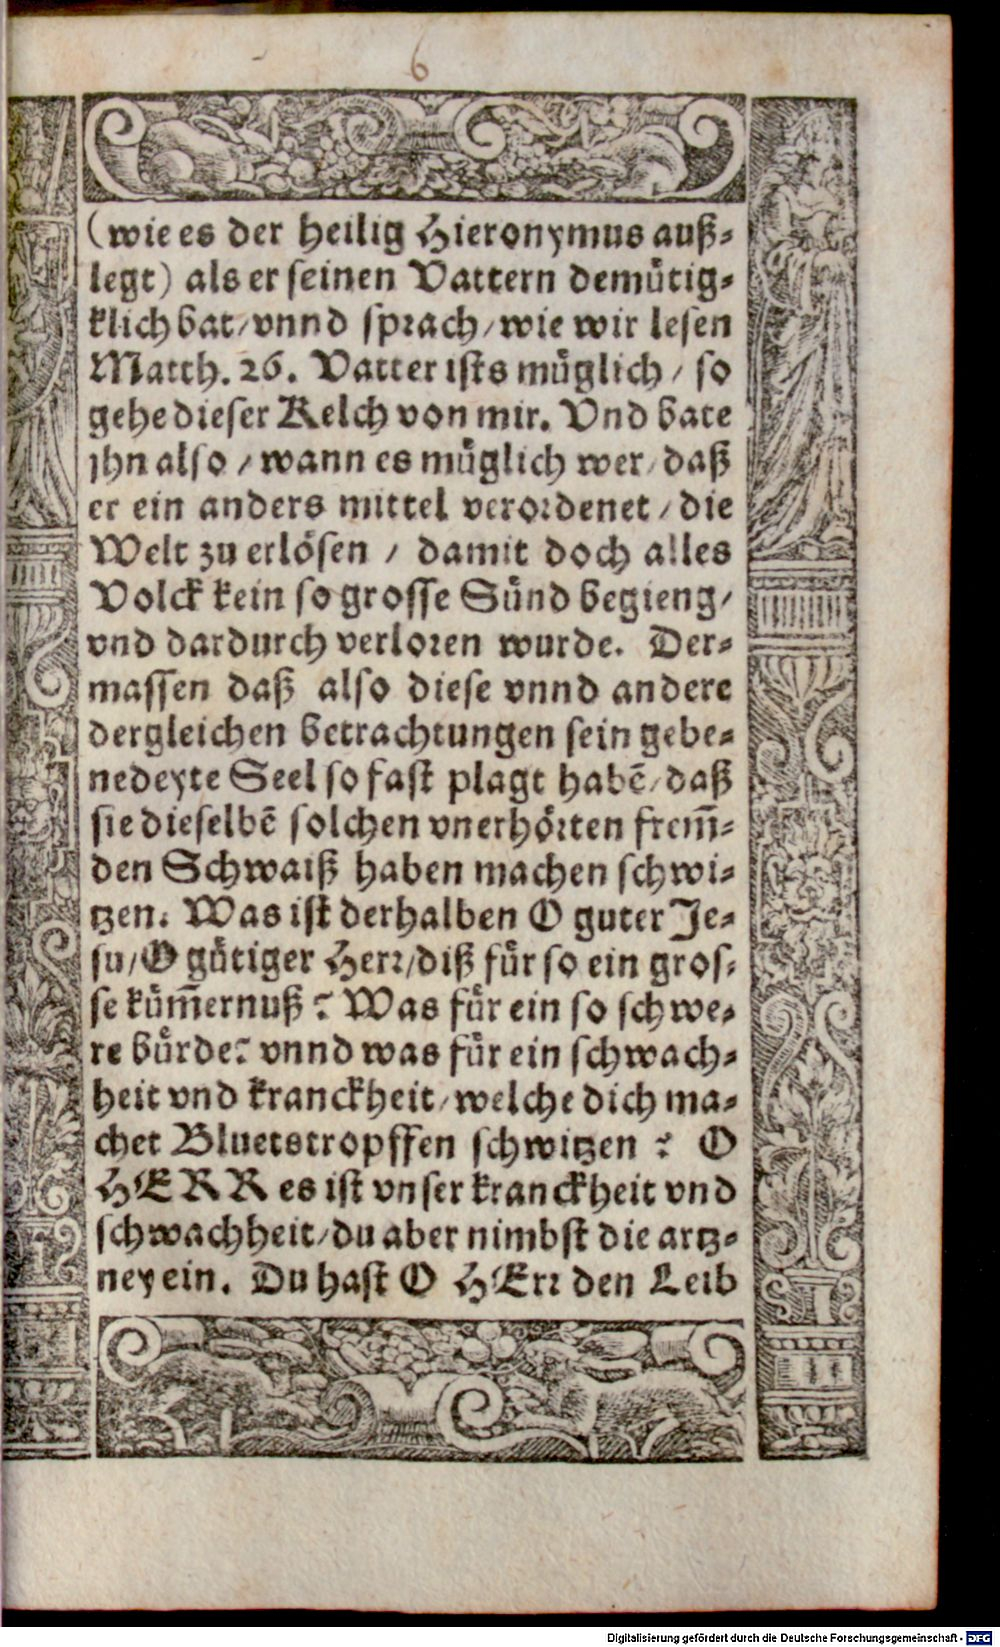 6
(wie es der heilig Hieronymus auß-
legt) als er seinen Vattern demütig-
klich bat/ vnnd sprach/ wie wir lesen
Matth. 26. Vatter ists müglich / so
gehe dieser Kelch von mir. Vnd bate
jhn also / wann es müglich wer/ daß
er ein anders mittel verordenet / die
Welt zu erlösen / damit doch alles
Volck kein so grosse Sünd begieng/
vnd dardurch verloren wurde. Der-
massen daß also diese vnnd andere
dergleichen betrachtungen sein gebe-
nedeyte Seel so fast plagt habē/ daß
sie dieselbē solchen vnerhörten frem̄-
den Schwaiß haben machen schwi-
tzen. Was ist derhalben O guter Je-
su/ O gütiger Herr/ diß für so ein gros-
se küm̄ernuß? Was für ein so schwe-
re bürde? vnnd was für ein schwach-
heit vnd kranckheit/ welche dich ma-
chet Bluetstropffen schwitzen ? O
HERR es ist vnser kranckheit vnd
schwachheit/ du aber nimbst die artz-
ney ein. Du hast O HErr den Leib
Digitalisierung gefördert durch die Deutsche Forschungsgemeinschaft - DFG